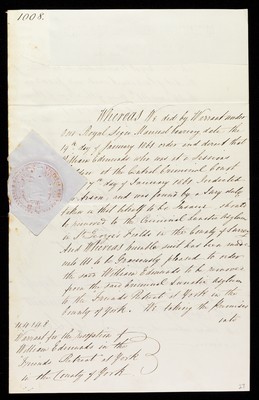 1008.
Whereas We did by Warrant under
Our Royal Sign Manual bearing date the
14th day of January 1861 order and direct that
William Edmunds who was at a Sessions
holden at the Central Criminal Court
day of January 185 Indicted
Arson, and was found by a Jury duly
taken in that behalf to be Insane should
be removed to the Criminal Lunatic Asylum
in St. Georges Fields in the County of Surrey
And Whereas humble suit has been made
unto Us to be Graciously pleased to order
the said William Edmunds to be removed
from the said Criminal Lunatic Asylum
to the Friends Retreat at York in the
County of York. We taking the premises
into
Warrant for the Reception of
William Edmunds in the
Friends Retreat at York
in the County of York.